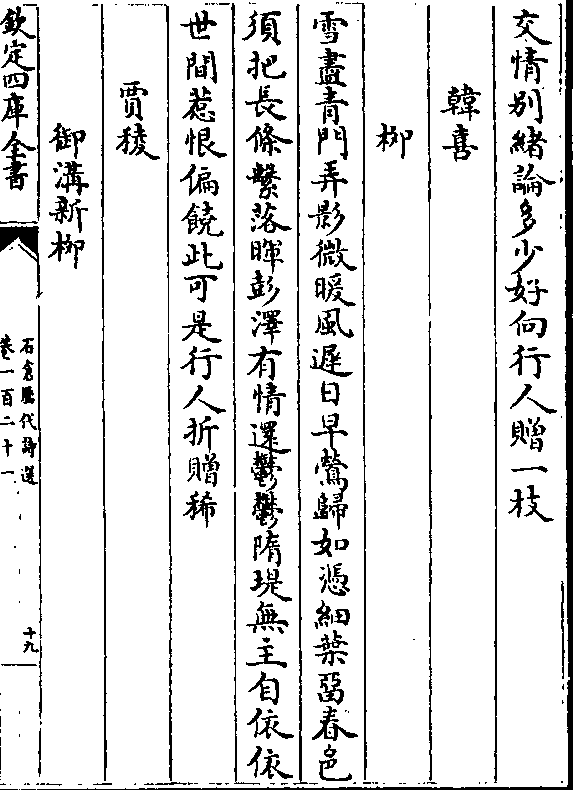 交情别緒論多少好向行人贈一枝
韓喜
柳
雪盡青門弄影微暖風遲日早鶯歸如憑細葉留春色
須把長條繫落暉彭澤有情還鬱鬱隋堤無主自依依
世間惹恨偏饒此可是行人折贈稀
賈稜
御溝新柳
欽定四庫全書
石倉歷代詩選
卷一百二十一
十九